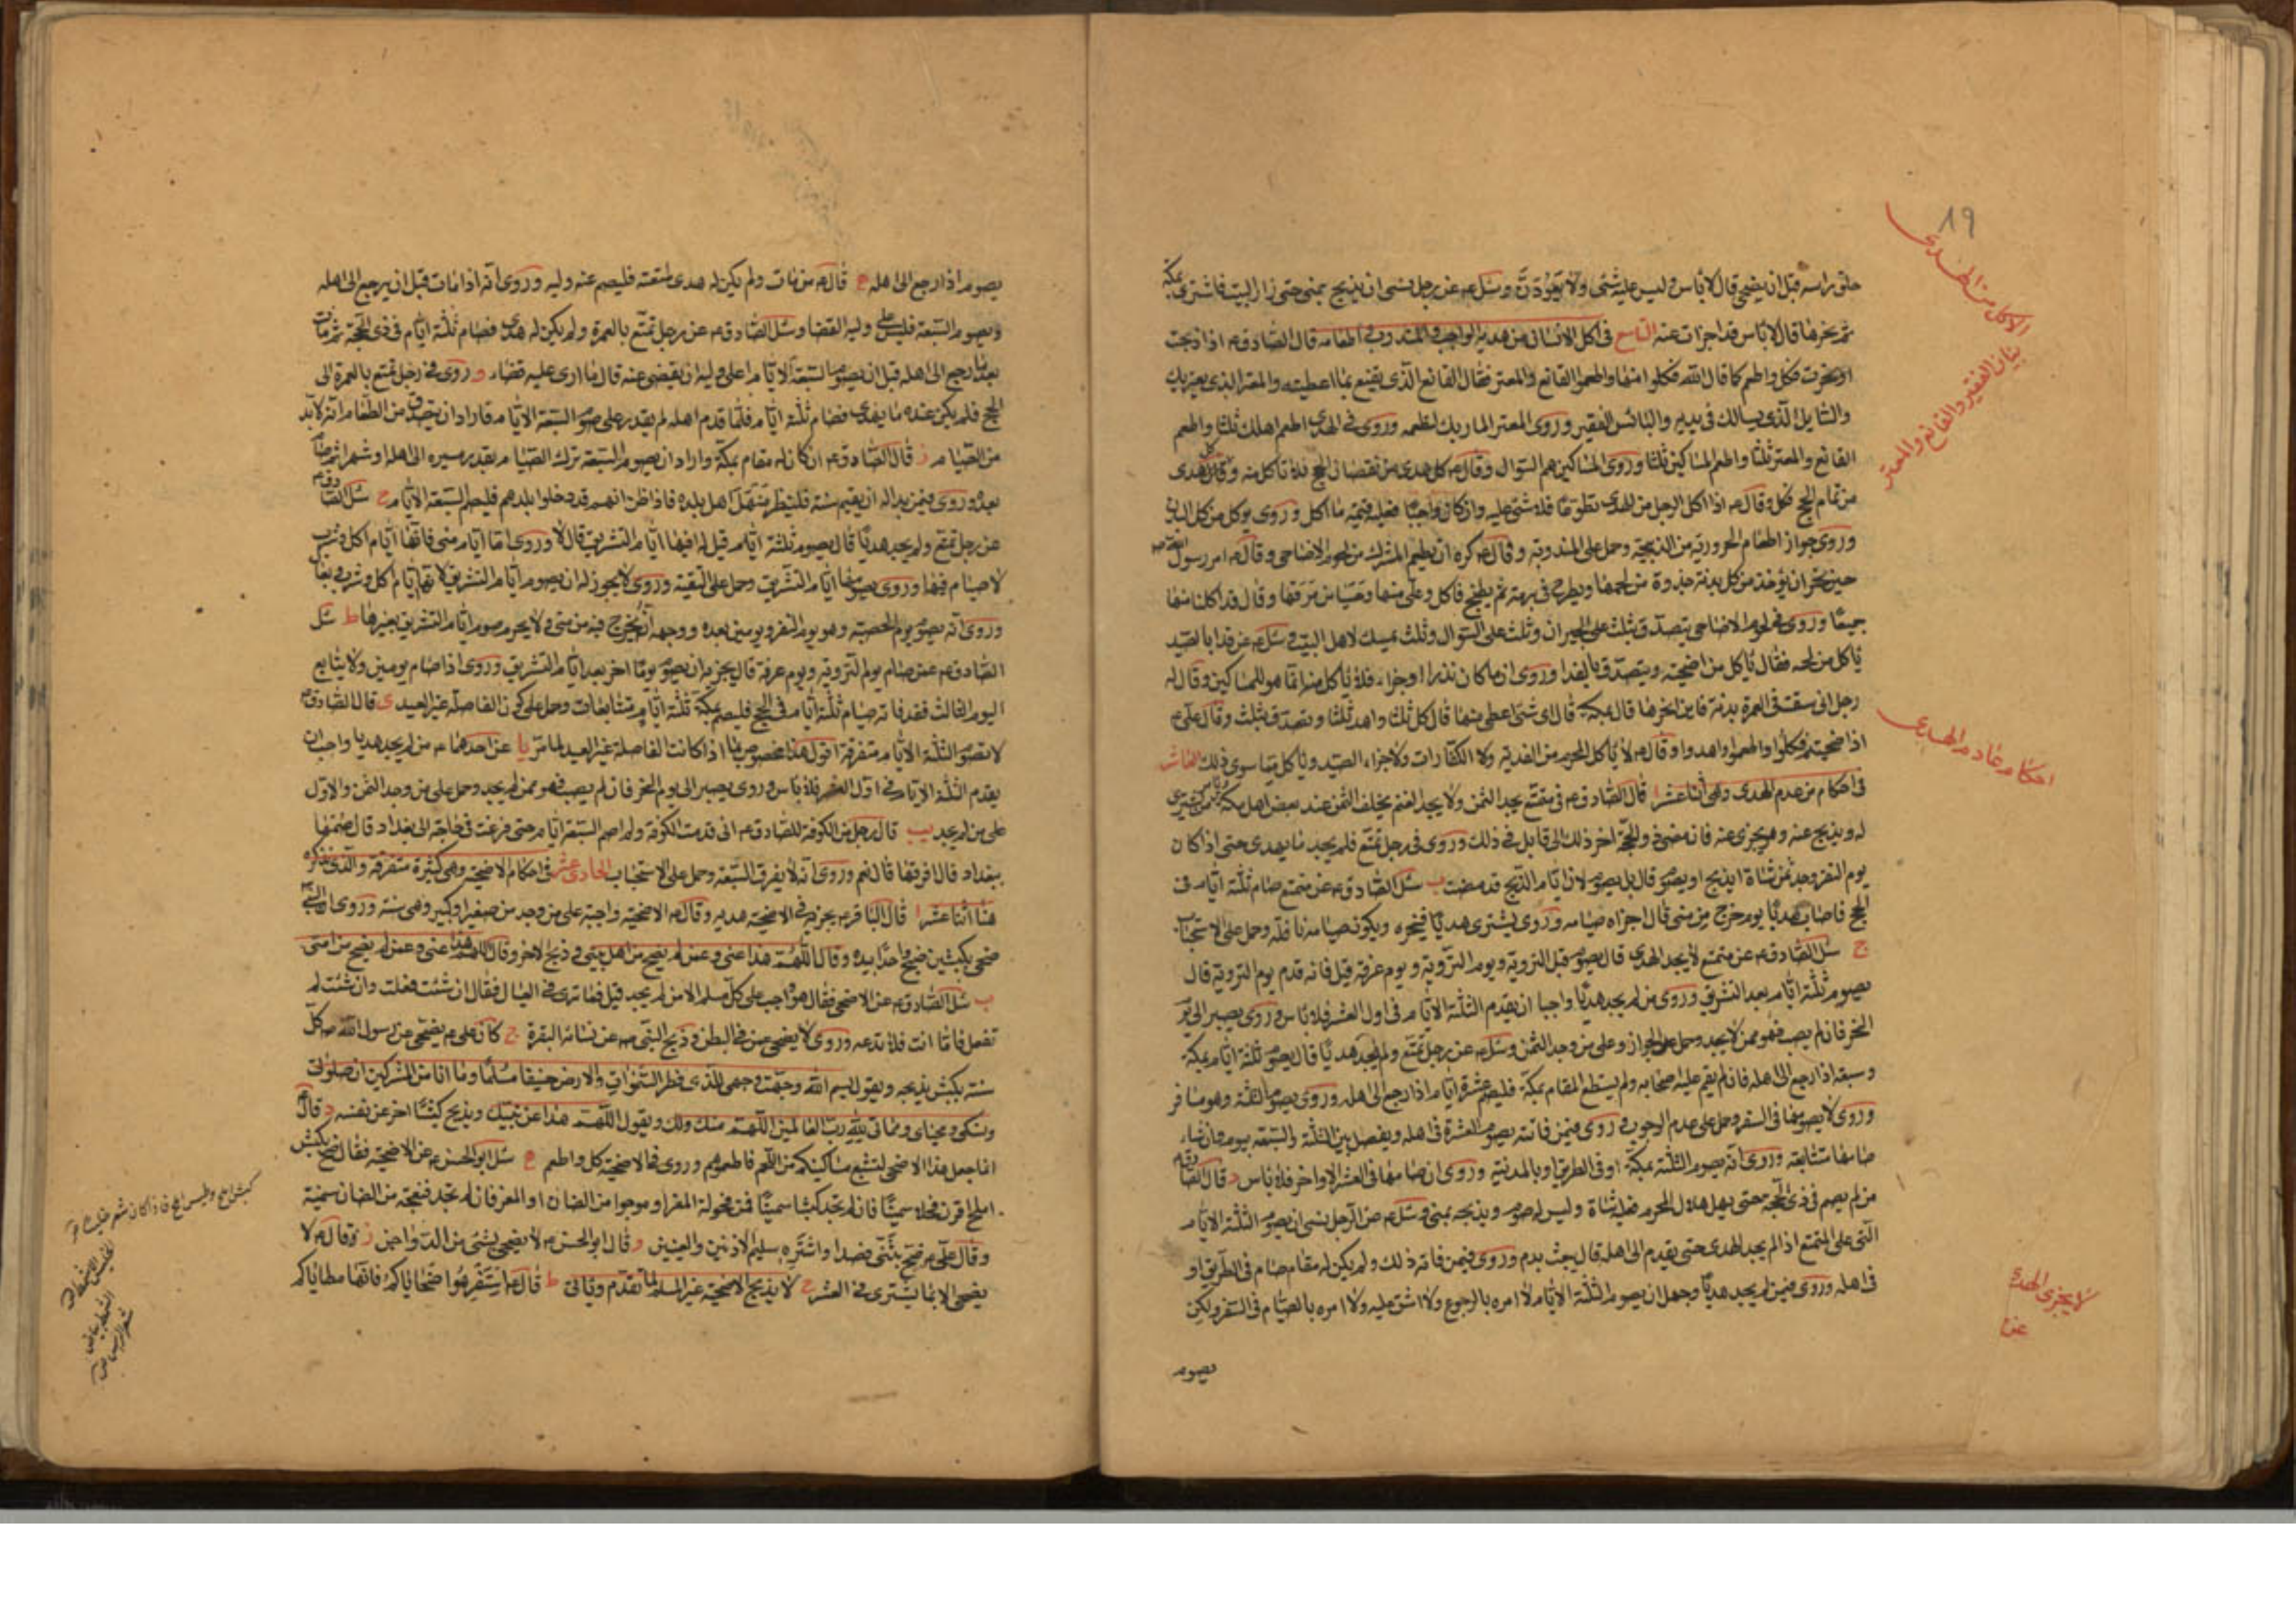 حلق راسه قبل ان يضحى قال لا باس وليس عليه شئ ولا يعودن وسئل ع عن رجل نسى ان يذبح بمنى حتى زار البيت فاشترى بمكة
ثم نحرها قال لا باس قد اجزات عنه التاسع فى اكل الانسان من هديه الواجب والمندوب واطعامه قال الصادق ع اذا ذبحت
او نحرت فكل واطعم كما قال الله فكلوا منها واطعموا القانع والمعتر فقال القانع الذى يقنع بما اعطيته والمعتر الذى يعتريك
والسايل الذى يسالك فى يديه والبائس الفقير وروى المعتر المار بك لتطعمه وروى فى الهدى اطعم اهلك ثلثا واطعم
القانع والمعتر ثلثا واطعم المساكين ثلثا وروى المساكين هم السوال وقال ع كل هدى من نقصان الحج فلا تاكل منه وكل هدى
من تمام الحج فكل وقال ع اذا اكل الرجل من الهدى تطوعا فلا شئ عليه وان كان واجبا فعليه قيمة ما اكل وروى يوكل من كل البدن
وروى جواز اطعام الحرورية من الذبيحة وحمل على المندوبة وقال ع كره ان يطعم المشرك من لحوم الاضاحى وقال ع امر رسول الله ص
حين نحر ان يؤخذ من كل بدنة جذوة من لحمها ويطرح فى برمة ثم يطبخ فاكل وعلى منها وحسيا من مرقها وقال قد اكلنا منها
جميعا وروى فى لحوم الاضاحى يتصدق بثلث على الجيران وثلث على السوال وثلث يمسك لاهل البيت وسئل ع عن فداء الصيد
ياكل من لحمه فقال ياكل من اضحيته ويتصدق بالفدا وروى ان ما كان نذرا او جزاء فلا ياكل منه انما هو للمساكين وقال له
رجل انى سقت فى العمرة بدنة فاين انحرها قال بمكة قال اى شئ اعطى منها قال كل ثلثا واهد ثلثا وتصدق بثلث وقال على ع
اذا ضحيتم فكلوا واطعموا واهدوا وقال ع لا ياكل المحرم من الفدية ولا الكفارات ولا جزاء الصيد وياكل مما سوى ذلك العاشر
فى احكام من عدم الهدى وهى اثنا عشر ا قال الصادق ع فى متمتع يجد الثمن ولا يجد الغنم يخلف الثمن عند بعض اهل مكة ويامر من يشترى
له ويذبح عنه وهو يجزى عنه فان مضى ذو الحجة اخر ذلك الى قابل فى ذلك وروى فى رجل تمتع فلم يجد ما يهدى حتى اذا كان
يوم النفر وجد ثمن شاة ايذبح او يصوم قال بل يصوم لان ايام الذبح قد مضت ب سئل الصادق ع عن متمتع صام ثلثة ايام فى
الحج فاصاب هديا يوم خرج من منى قال اجزاه صيامه وروى يشترى هديا فينحره ويكون صيامه نافلة وحمل على الاستحباب
ج سئل الصادق ع عن متمتع لا يجد الهدى قال يصوم قبل التروية ويوم التروية ويوم عرفة قيل فانه قدم يوم التروية قال
يصوم ثلثة ايام بعد التشريق وروى من لم يجد هديا واجبا ان يقدم الثلثة الايام فى اول العشر فلا باس وروى يصبر الى يوم
النحر فان لم يصب فهو ممن لا يجد وحمل على الجواز وعلى من وجد الثمن وسئل ع عن رجل تمتع ولم يجد هديا قال يصوم ثلثة ايام بمكة
وسبعة اذا رجع الى اهله فان لم يقم عليه اصحابه ولم يستطع المقام بمكة فليصم عشرة ايام اذا رجع الى اهله وروى يصوم الثلثة وهو مسافر
وروى لا يصومها فى السفر وحمل على عدم الوجوب وروى فيمن فاتته يصوم العشرة فى اهله ويفصل بين الثلثة والسبعة بيوم وان شاء
صامها متتابعة وروى انه يصوم الثلثة بمكة او فى الطريق او بالمدينة وروى ان صامها فى العشر الاواخر فلا باس د قال الصادق ع
من لم يصم فى ذى الحجة حتى يهل هلال المحرم فعليه شاة وليس له صوم ويذبحه بمنى وسئل ع عن الرجل نسى ان يصوم الثلثة الايام
التى على المتمتع اذا لم يجد الهدى حتى يقدم الى اهله قال يبعث بدم وروى فيمن فاته ذلك ولم يكن له مقام صام فى الطريق او
فى اهله وروى فيمن لم يجد هديا وجهل ان يصوم الثلثة الايام لا امره بالرجوع ولا اشق عليه ولا امره بالصيام فى السفر ولكن
يصوم
١٩
الاكل من الهدى
بيان الفقير والقانع والمعتر
احكام عادم الهدى
لا يجزى الهدى
عن
يصوم اذا رجع الى اهله ه قال ع من مات ولم يكن له هدى لمتعته فليصم عنه وليه وروى انه اذا مات قبل ان يرجع الى اهله
ويصوم السبعة فليس على وليه القضا وسئل الصادق ع عن رجل تمتع بالعمرة ولم يكن له هدى فصام ثلثة ايام فى ذى الحجة ثم مات
بعد ما رجع الى اهله قبل ان يصوم السبعة الايام اعلى وليه ان يقضى عنه قال ما ارى عليه قضاء و وروى فى رجل تمتع بالعمرة الى
الحج فلم يكن عنده ما يهدى فصام ثلثة ايام فلما قدم اهله لم يقدر على صوم السبعة الايام فاراد ان يتصدق من الطعام انه لا بد
من الصيام ز قال الصادق ع ان كان له مقام بمكة واراد ان يصوم السبعة ترك الصيام بقدر مسيره الى اهله او شهرا ثم صام
بعده وروى فيمن بدا له ان يقيم سنة فلينظر منهل اهل بلده فاذا ظن انهم قد دخلوا بلدهم فليصم السبعة الايام ح سئل الصادق ع
عن رجل تمتع ولم يجد هديا قال يصوم ثلثة ايام قيل له افيها ايام التشريق قال لا وروى اما ايام منى فانها ايام اكل وشرب
لا صيام فيها وروى يصومها ايام التشريق وحمل على التقية وروى لا يجوز له ان يصوم ايام التشريق لانها ايام اكل وشرب وبعال
وروى انه يصوم يوم الحصبة وهو يوم النفر ويومين بعده ووجهه انه يخرج فيه من منى ولا يحرم صوم ايام التشريق بغيرها ط سئل
الصادق ع عمن صام يوم التروية ويوم عرفة قال يجزيه ان يصوم يوما اخر بعد ايام التشريق وروى اذا صام يومين ولا يتابع
اليوم الثالث فقد فاته صيام ثلثة ايام فى الحج فليصم بمكة ثلثة ايام متتابعات وحمل على كون الفاصلة غير العيد ى قال الصادق ع
لا تصوم الثلثة الايام متفرقة اقول هذا مخصوص بما اذا كانت الفاصلة غير العيد لما مر يا عن احدهما ع من لم يجد هديا واحب ان
يقدم الثلثة الايام فى اول العشر فلا باس وروى يصبر الى يوم النحر فان لم يصب فهو ممن لم يجد وحمل على من وجد الثمن والاول
على من لم يجد يب قال رجل من الكوفة للصادق ع انى قدمت الكوفة ولم اصم السبعة ايام حتى فزعت فى حاجة الى بغداد قال صمها
ببغداد قال افرقها قال نعم وروى انه لا يفرق السبعة وحمل على الاستحباب الحادى عشر فى احكام الاضحية وهى كثيرة متفرقة والذى نذكره
هنا اثنا عشر ا قال الباقر ع يجزيه فى الاضحية هديه وقال ع الاضحية واجبة على من وجد من صغير او كبير وهى سنة وروى ان النبى
ضحى بكبشين ذبح واحدا بيده وقال اللهم هذا عنى وعمن لم يضح من اهل بيتى وذبح الاخر وقال اللهم هذا عنى وعمن لم يضح من امتى
ب سئل الصادق ع عن الاضحى فقال هو واجب على كل مسلم الا من لم يجد قيل فما ترى فى العيال فقال ان شئت فعلت وان شئت لم
تفعل فاما انت فلا تدعه وروى لا يضحى عمن فى البطن وذبح النبى ص عن نسائه البقرة ج كان على ع يضحى عن رسول الله ص كل
سنة بكبش يذبحه ويقول بسم الله وجهت وجهى للذى فطر السموات والارض حنيفا مسلما وما انا من المشركين ان صلوتى
ونسكى ومحياى ومماتى لله رب العالمين اللهم منك ولك ويقول اللهم هذا عن نبيك ويذبح كبشا اخر عن نفسه د قال ع
انما جعل هذا الاضحى لتشبع مساكينكم من اللحم فاطعموهم وروى فى الاضحية كل واطعم ه سئل ابو الحسن ع عن الاضحية فقال ضح بكبش
املح اقرن فحلا سمينا فان لم تجد كبشا سمينا فمن فحولة المعز او موجوءا من الضان او المعز فان لم تجد فنعجة من الضان سمينة
وقال على ع ضح بثنى فصاعدا واشتره سليم الاذنين والعينين و وقال ابو الحسن ع لا يضحى بشئ من الدواجن ز وقال ع لا
يضحى الا بما يشترى فى العشر ح لا يذبح الاضحية غير المسلم لما تقدم وياتى ط قال ع استفرهوا ضحاياكم فانها مطاياكم